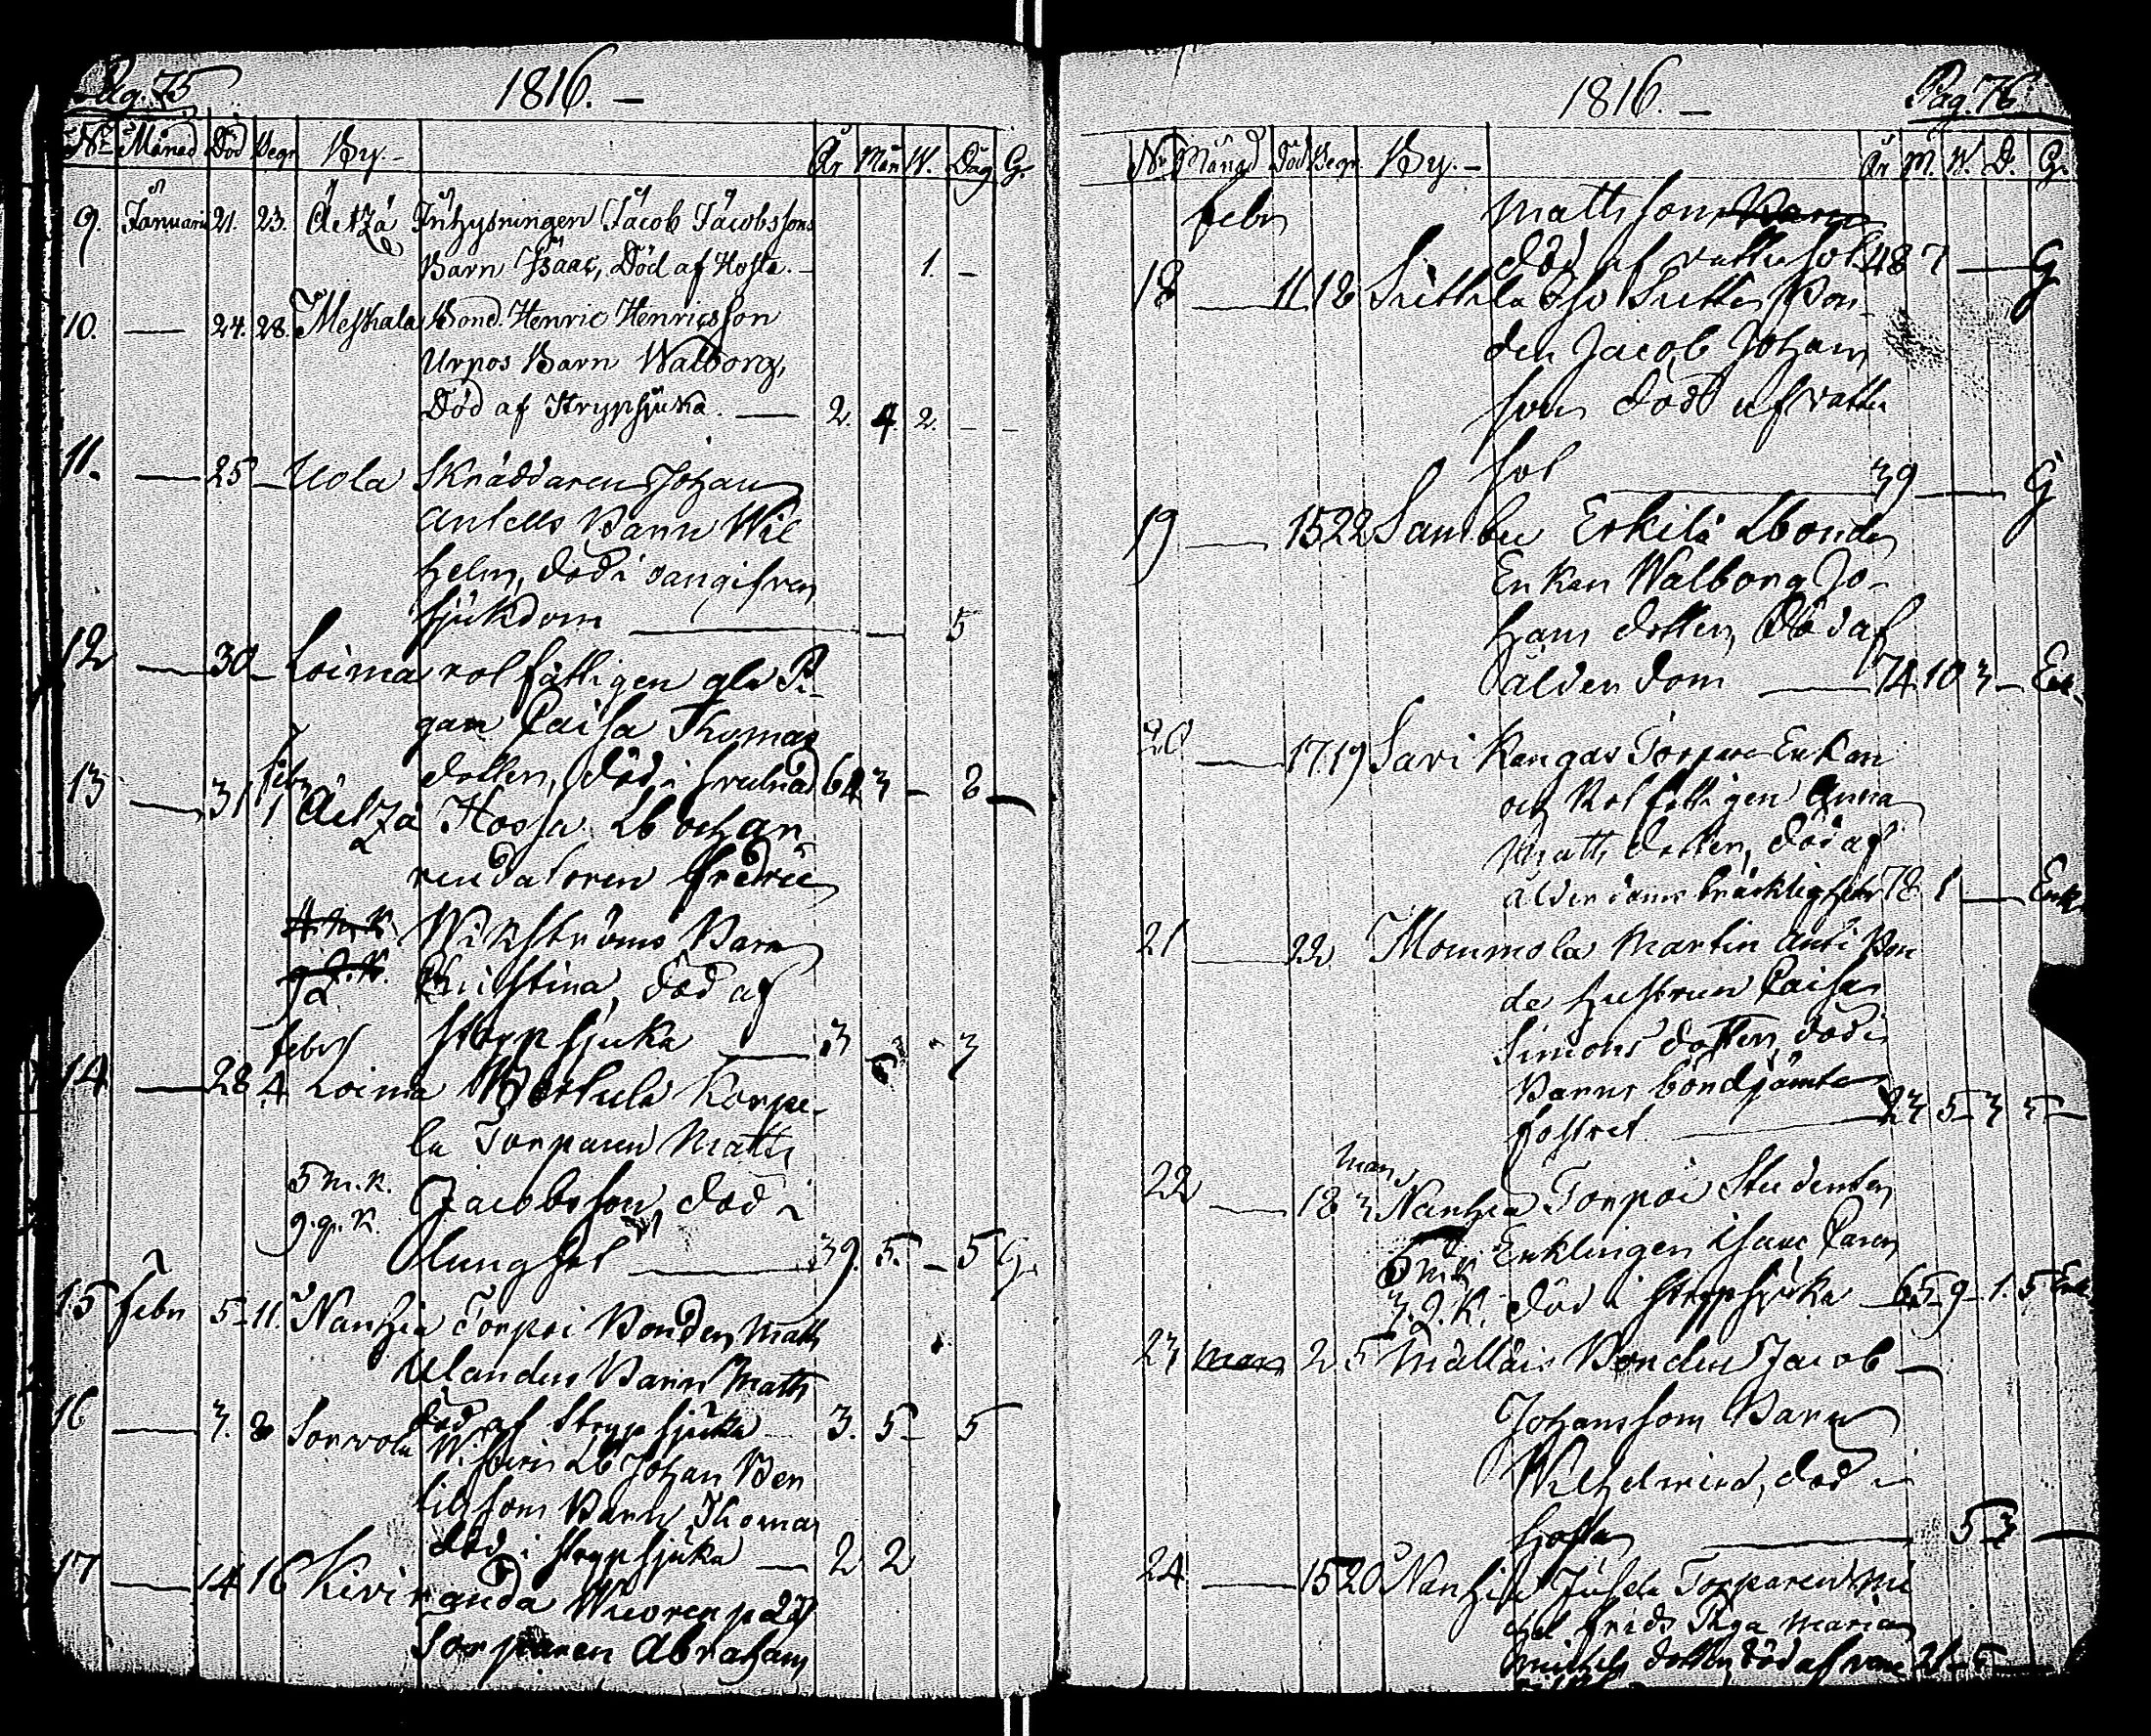 Pag. 75 1816. –
No Månad Död Begr By.– År Mån W. Dag G.
9. Januari 21. 23. Ăetzä Inhysningen Jacob Jacobssons
Barn Isaac, Död af Hosta.– 1. –
10. — 24. 28. Mesthala Bond. Henric Henricsson
Urpos Barn Walborg,
Död af Strypsjuka. — 2. 4. 2. – –
11. — 25 – Uola Skräddaren Johan
Antells Barn Wil
helm, död i oangifven
sjukdom — 5
12 — 30 – Loima rotfattigen gla Pi-
gan Caisa Thomas
dotter, död i svulnad 64 3 – 2 –
13 — 31 Febr 1 Äetzä Hossa Lb och ar
rendatoren Fredric
Wikströms Barn
Christina, död af
strypsjuka — 3 3 - 3
14 — 28 Febr 4 Loima Korpe-
la Torparen Matts
5 m. k. Jacobsson, död i
9. q. k. lungsot — 39. 5. – 5 G.
15 Febr 5 – 11. Nanhia Torpoi Bonden Matts
Ulanders Barn Matts
död af Strypsjuka 3. 5 – 5
16 — 7. 8 Sorvola Lb Johan Ben
Barn Thomas
död i strypsjuka — 2 2
17 — 14 16 Kiviranda
Torparen Abraham
1816. – Pag. 76
No Månad Död Begr. By.– År M. W. D. G.
Febr Mattsson
död af vattusot 48 7 — G
18 — 11 18 Bon-
den Jacob Johans
son död af vattu
sot — 39 — G
19 — 15 22 Erkilä Lbonde
Enkan Walborg Jo-
hans dotter, Död af
ålderdom — 74 10 3 – En.
20 — 17. 19 Sari Kangas Torpare Enkan
och Rotfattigen Anna
Matts dotter, död af
ålderdoms bräcklighet 78 1 — Enk.
21 — 22 Mommola Martin Anti Bon
de hustrun Caisa
Simons dotter, död i
Barns börd jämte
fostret — 23 5 – 3 5 —
22 — 18 Mars 3 Nanhia Torpoi Studenten
5 m. k. Enklingen Isaac
3. q. k. död i strypsjuka 65 – 9 – 1. 5 Enk
23 Mars 2 5 Mälläis Bonden Jacob –
Johansson Barn
Wilhelmina, död i
hosta — 5 3 —
24 — 15 20 Nanhia Torparen Mi
chel Frids Piga Maria
Michels dotter, död af 21 – 5